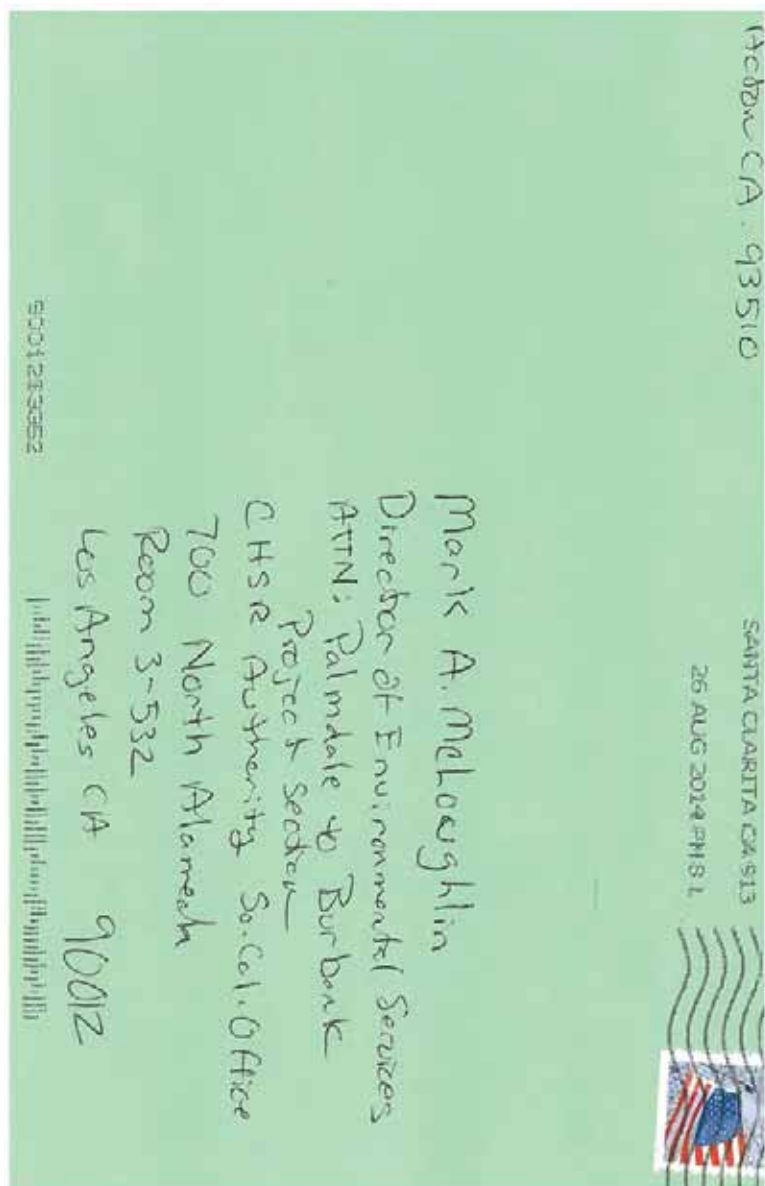 Acton CA. 93510
SANTA CLARITA CA 913
26 AUG 2014 PM 8 L
Mark A. McLoughlin
Director of Environmental Services
ATTN: Palmdale to Burbank
Project Section
CHSR Authority So. Cal. Office
700 North Alameda
Room 3-532
Los Angeles CA 90012
90012$3352